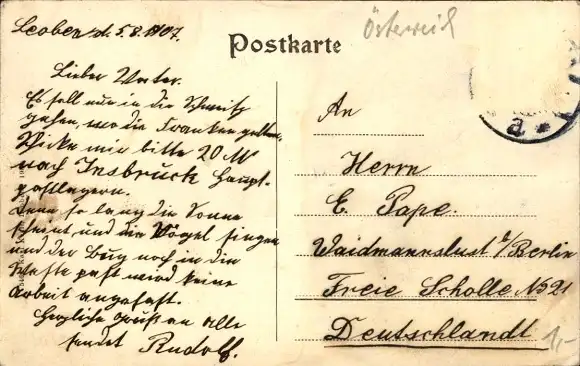 Leoben d. 5.8.1907.
Postkarte
Österreich
Lieber Vater.
Es soll nur in die Schweiz
gehen, wo die Franken gelten.
Schicke mir bitte 20 M
nach Insbruck Haupt-
postlagern.
Denn so lang die Sonne
scheint und die Vögel singen
und der Bauch noch in die
Weste past wird keine
Arbeit angefast.
Herzliche Grüße an alle
sendet Rudolf.
An
Herrn
E. Pape.
Waidmannslust b/Berlin
Freie Scholle No 21
Deutschlandt
1,-
a *